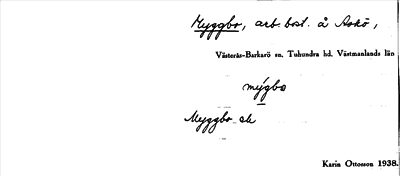 Myggbo, arb. bost. å Askö,
Västerås-Barkarö sn. Tuhundra hd. Västmanlands län
mýgbo
Myggbo ek
Karin Ottosson 1938.